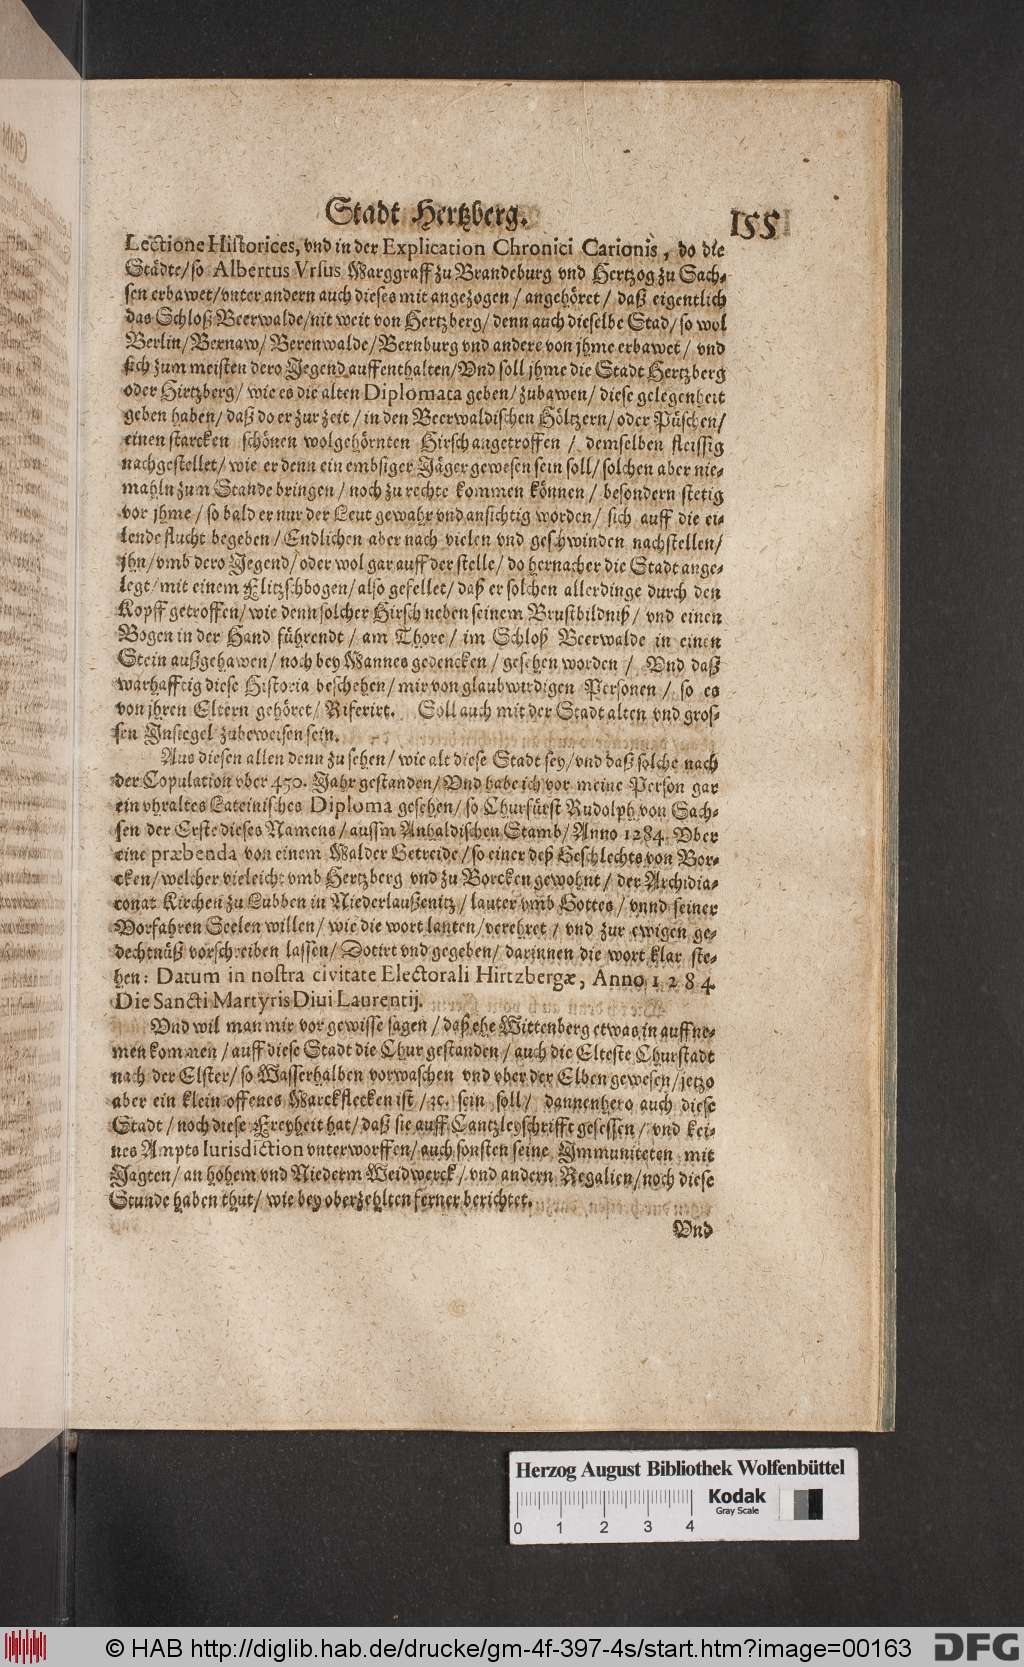 Stadt Hertzberg. 155
Lectione Historices, vnd in der Explication Chronici Carionis, do die
Städte/ so Albertus Vrsus Marggraff zu Brandeburg vnd Hertzog zu Sach-
sen erbawet/ vnter andern auch dieses mit angezogen / angehöret / daß eigentlich
das Schloß Beerwalde/ nit weit von Hertzberg/ denn auch dieselbe Stad/ so wol
Berlin/ Bernaw/ Berenwalde/ Bernburg vnd andere von jhme erbawet/ vnd
sich zum meisten dero Jegend auffenthalten/ Vnd soll jhme die Stadt Hertzberg
oder Hirtzberg/ wie es die alten Diplomata geben/ zubawen/ diese gelegenheit
geben haben/ daß do er zur zeit / in den Beerwaldischen Höltzern/ oder Püschen/
einen starcken schönen wolgehörnten Hirsch angetroffen / demselben fleissig
nachgestellet/ wie er denn ein embsiger Jäger gewesen sein soll/ solchen aber nie-
mahln zum Stande bringen / noch zu rechte kommen können / besondern stetig
vor jhme / so bald er nur der Leut gewahr vnd ansichtig worden/ sich auff die ei-
lende flucht begeben / Endlichen aber nach vielen vnd geschwinden nachstellen/
jhn/ vmb dero Jegend/ oder wol gar auff der stelle/ do hernacher die Stadt ange-
legt/ mit einem Flitzschbogen/ also gefellet/ daß er solchen allerdinge durch den
Kopff getroffen/ wie denn solcher Hirsch neben seinem Brustbildniß/ vnd einen
Bogen in der Hand führendt / am Thore / im Schloß Beerwalde in einen
Stein außgehawen/ noch bey Mannes gedencken / gesehen worden / Vnd daß
warhafftig diese Historia beschehen/ mir von glaubwirdigen Personen / so es
von jhren Eltern gehöret/ Riferirt. Soll auch mit der Stadt alten vnd gros-
sen Insiegel zubeweisen sein.
Aus diesen allen denn zu sehen/ wie alt diese Stadt sey/ vnd daß solche nach
der Copulation vber 450. Jahr gestanden/ Vnd habe ich vor meine Person gar
ein vhraltes Lateinisches Diploma gesehen/ so Churfürst Rudolph von Sach-
sen der Erste dieses Namens/ ausm Anhaldischen Stamb/ Anno 1284. Vber
eine præbenda von einem Malder Getreide/ so einer deß Geschlechts von Bor-
cken/ welcher vieleicht vmb Hertzberg vnd zu Borcken gewohnt/ der Archidia-
conat Kirchen zu Lübben in Niederlaußenitz/ lauter vmb Gottes/ vnnd seiner
Vorfahren Seelen willen/ wie die wort lauten/ verehret / vnd zur ewigen ge-
dechtnüß vorschreiben lassen/ Dotirt vnd gegeben/ darinnen die wort klar ste-
hen: Datum in nostra civitate Electorali Hirtzbergæ, Anno 1284.
Die Sancti Martyris Diui Laurentij.
Vnd wil man mir vor gewisse sagen / daß ehe Wittenberg etwas in auffne-
men kommen / auff diese Stadt die Chur gestanden / auch die Elteste Churstadt
nach der Elster/ so Wasserhalben vorwaschen vnd vber der Elben gewesen/ jetzo
aber ein klein offenes Marckflecken ist / ꝛc. sein soll/ dannenhero auch diese
Stadt / noch diese Freyheit hat/ daß sie auff Cantzleyschrifft gesessen / vnd kei-
nes Ampts Iurisdiction vnterworffen/ auch sonsten seine Immuniteten mit
Jagten/ an hohem vnd Niederm Weidwerck/ vnd andern Regalien/ noch diese
Stunde haben thut/ wie bey oberzehlten ferner berichtet.
Vnd
Herzog August Bibliothek Wolfenbüttel
Kodak
Gray Scale
0 1 2 3 4
© HAB http://diglib.hab.de/drucke/gm-4f-397-4s/start.htm?image=00163
DFG